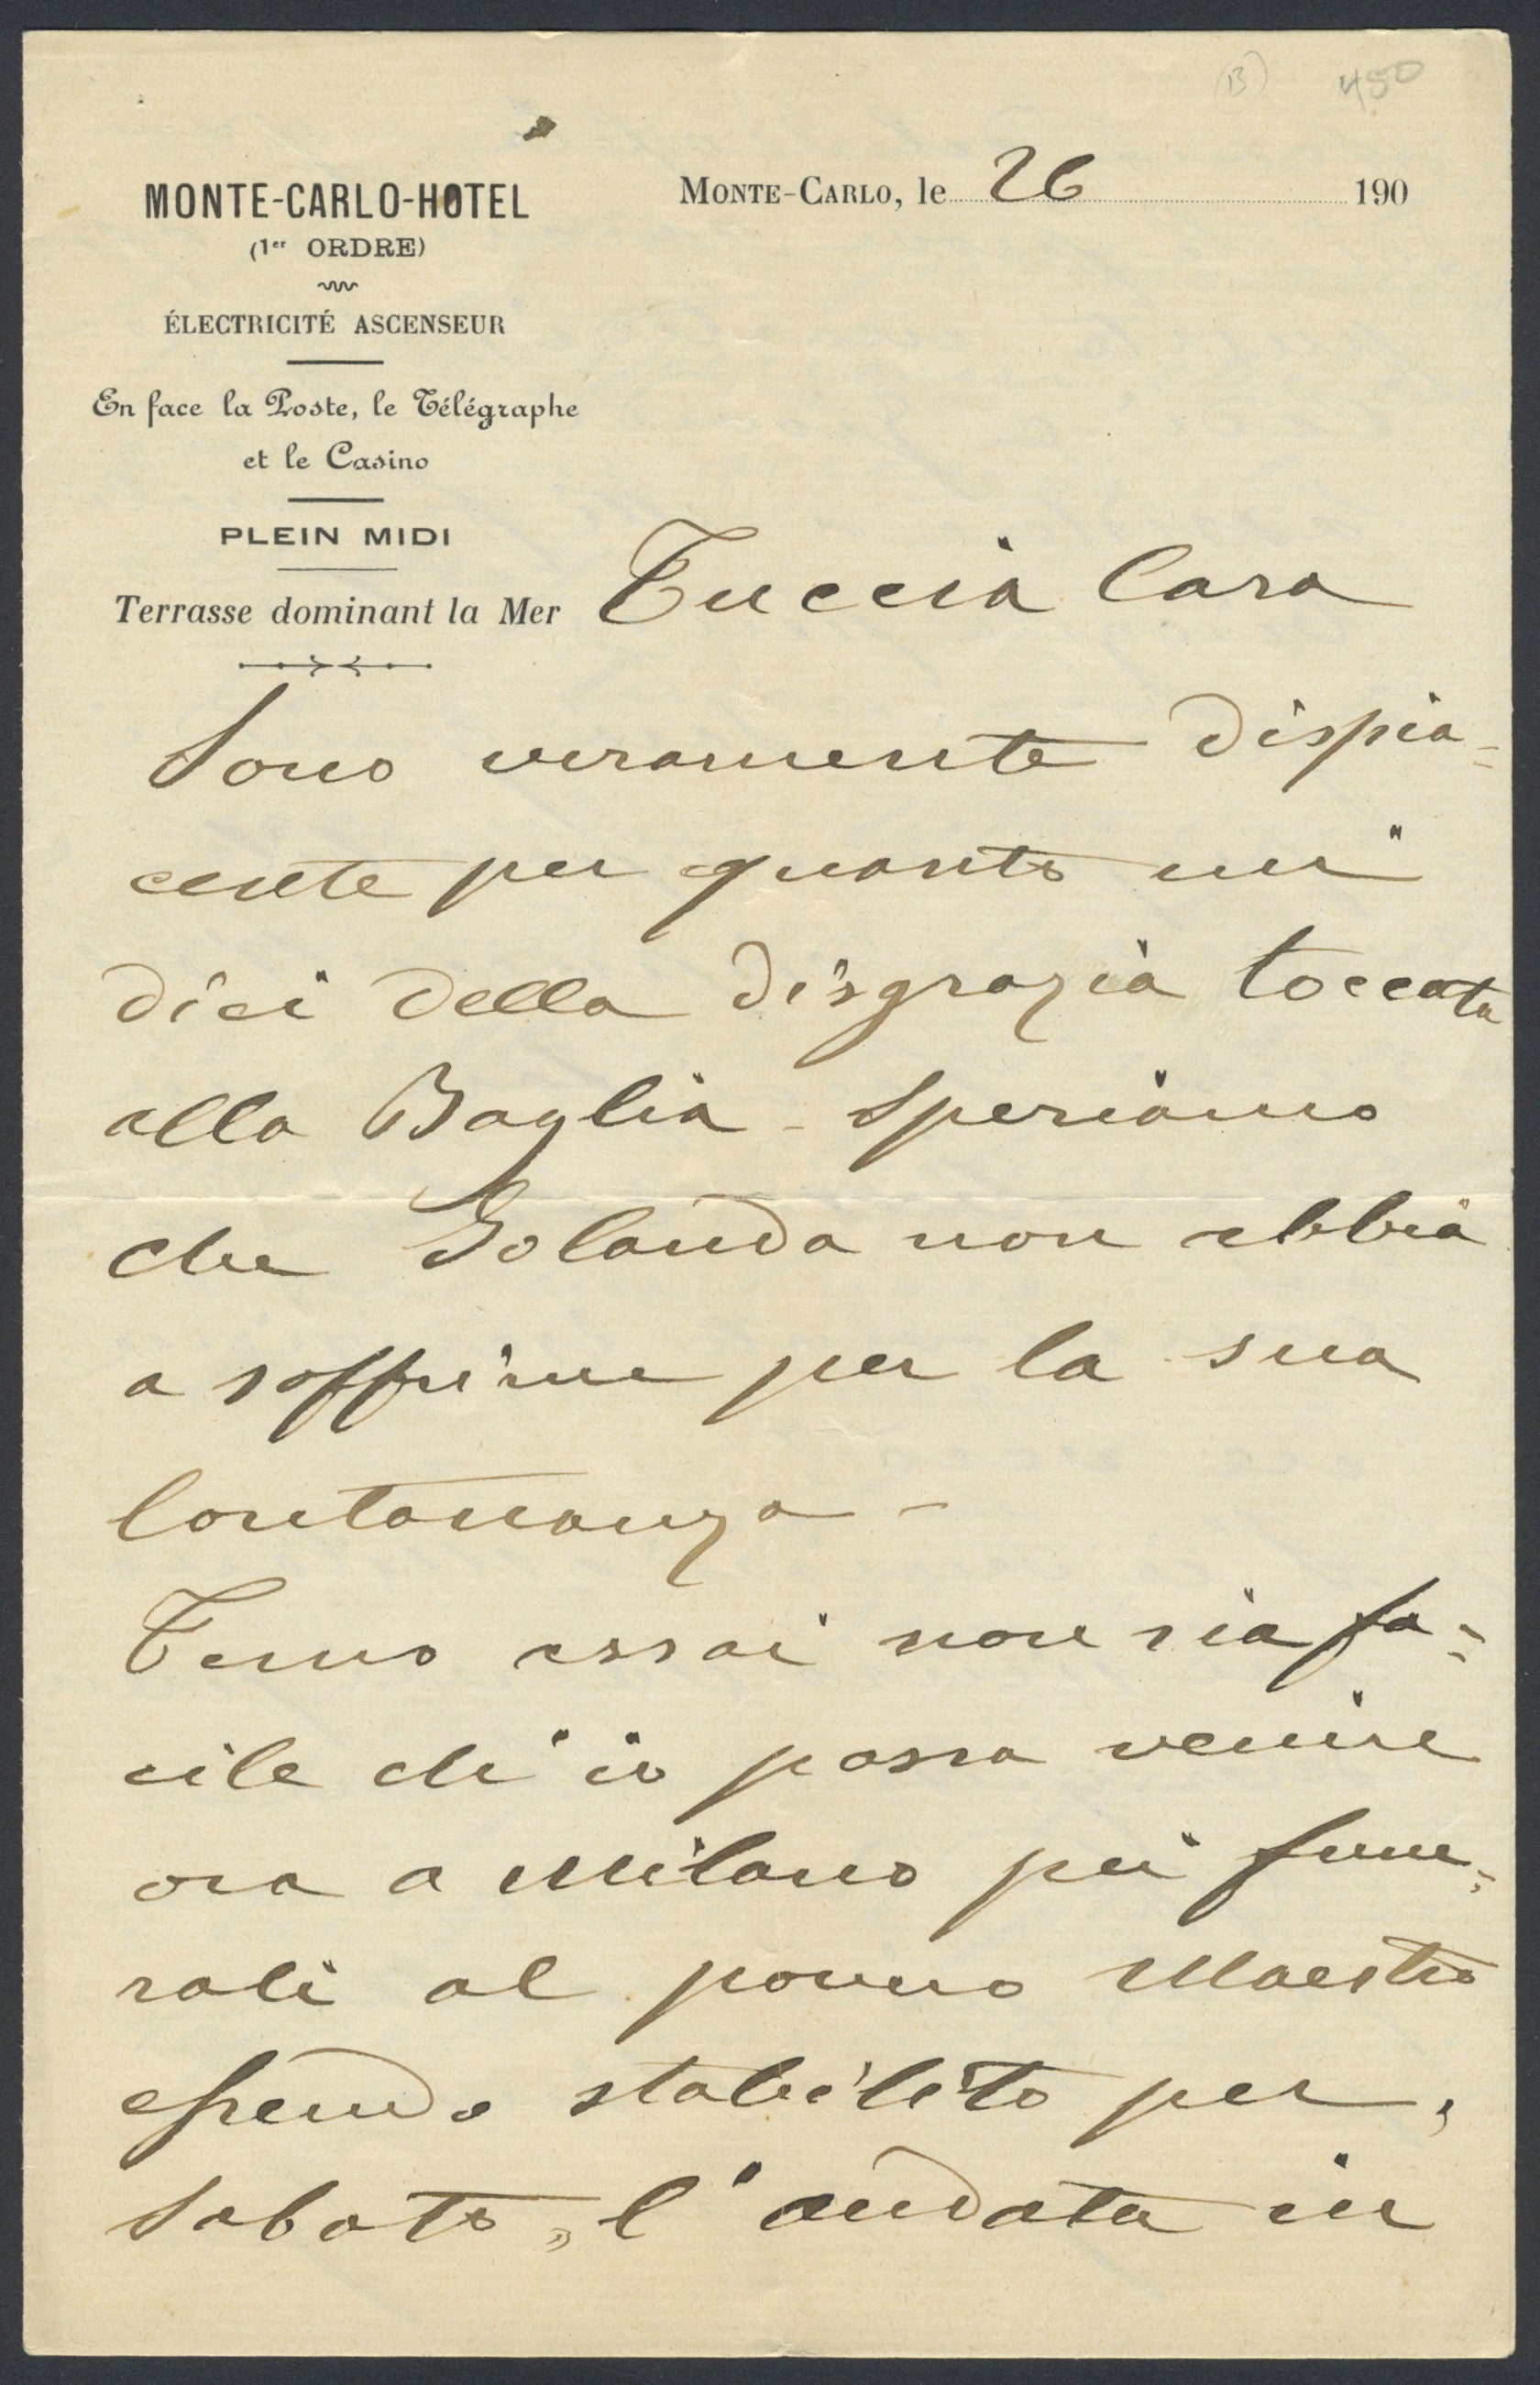 (B) 450
MONTE-CARLO-HOTEL
(1er ORDRE)
ÉLECTRICITÉ ASCENSEUR
En face la Poste, le Télégraphe
et le Casino
PLEIN MIDI
Terrasse dominant la Mer
MONTE-CARLO, le 26 190
Tuccia Cara
Sono veramente dispia=
cente per quanto mi
dici della disgrazia toccata
alla Baglia - Speriamo
che Iolanda non abbia
a soffrirne per la sua
lontananza -
Temo assai non sia fa=
cile ch'io possa venire
ora a Milano pei fune=
rali al povero Maestro
essendo stabilito per,
Sabato, l'andata in